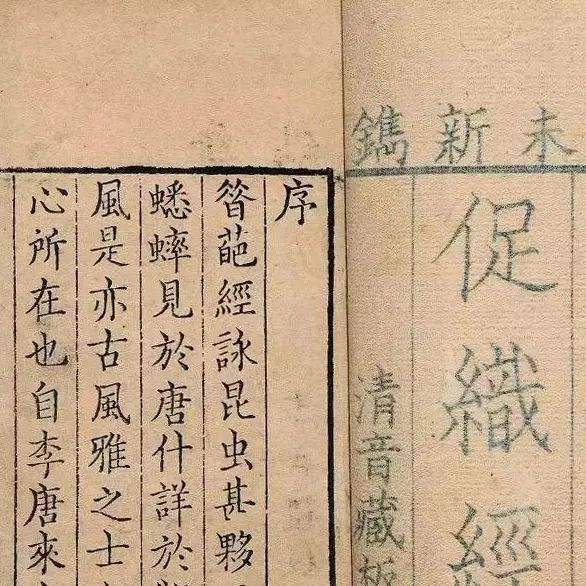 未新鐫
促織經
清音藏板
序
葩經詠昆虫甚夥
蟋蟀見於唐什詳於
風是亦古風雅之士
心所在也自李唐來